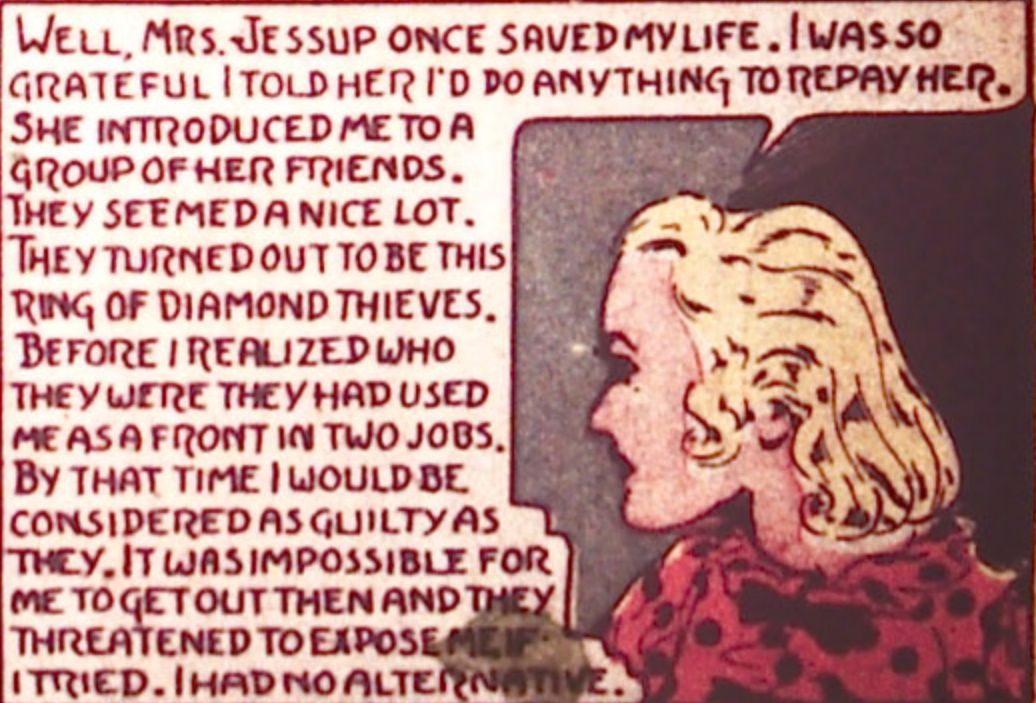 WELL, MRS. JESSUP ONCE SAVED MY LIFE. I WAS SO
GRATEFUL I TOLD HER I'D DO ANYTHING TO REPAY HER.
SHE INTRODUCED ME TO A
GROUP OF HER FRIENDS.
THEY SEEMED A NICE LOT.
THEY TURNED OUT TO BE THIS
RING OF DIAMOND THIEVES.
BEFORE I REALIZED WHO
THEY WERE THEY HAD USED
ME AS A FRONT IN TWO JOBS.
BY THAT TIME I WOULD BE
CONSIDERED AS GUILTY AS
THEY. IT WAS IMPOSSIBLE FOR
ME TO GET OUT THEN AND THEY
THREATENED TO EXPOSE ME IF
I TRIED. I HAD NO ALTERNATIVE.